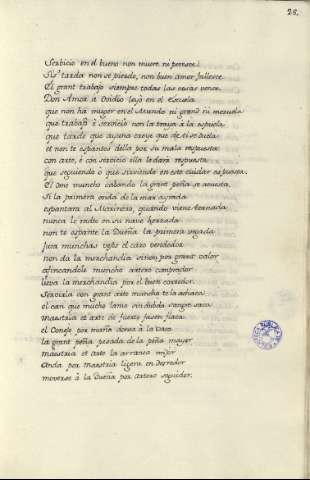 28.
Serbicio en el bueno non muere ni peresce:
Sis' tarda non se pierde, non buen amor fallesce.
El grant trabajo siempre todas las cosas vence.
Don Amor á Ovidio leyó en el Escuela
que non ha muger en el Mundo ni grand ni mozuela
que trabajo é servicio non la traya á la espuela:
que tarde que ayna creye que de ti se duela
et non te espantes della por su mala respuesta:
con arte, é con servicio ella te dará respuesta
que siguiendo é que sirviendo en este cuidar es puesta.
El Ome muncho cabando la grant peña se acuesta.
Si la primera onda de la mar ayrada
espantara al Marinero, quando viene tornada
nunca le entre en su nave herrada
non te espante la Dueña la primera vegada
Jura munchas veses el caro vendedor
non da la merchandia sinon por grant valor
afincandole muncho artero comprador
lieva la merchandia por el buen corredor.
Servirla con grant arte muncho te la achaca
el can que mucho lame sin dubda sangre saca
maestria et arte de fuerte fasen flaca.
el Conejo por maña doñea á la vaca
la grant peña pesada de la peña mayor
maestria et arte la arranca mejor
anda por maestria ligera en derredor
moverse á la Dueña por artero seguidor.